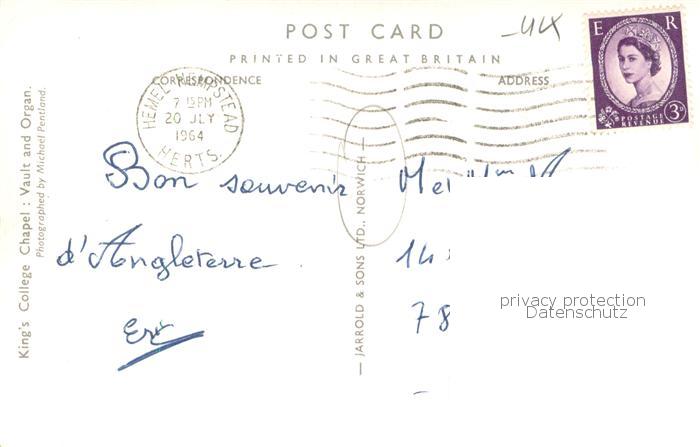 POST CARD
PRINTED IN GREAT BRITAIN
CORRESPONDENCE
ADDRESS
E R
POSTAGE
REVENUE
3D
HEMEL HEMPSTEAD
7 15 PM
20 JLY
1964
HERTS.
King's College Chapel : Vault and Organ.
Photographed by Michael Pentland.
Bon souvenir
d'Angleterre.
Eric
— JARROLD & SONS LTD., NORWICH —
14
78
privacy protection
Datenschutz